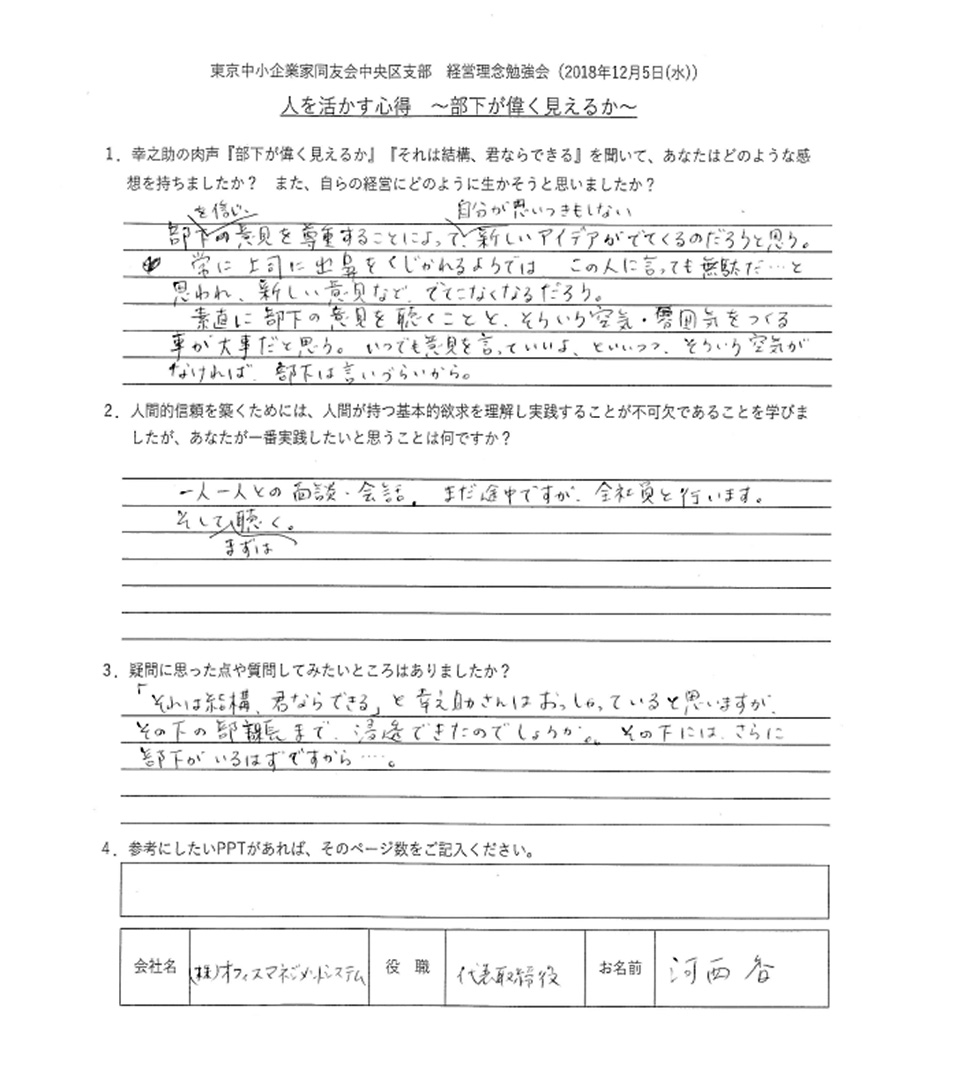 東京中小企業家同友会中央区支部　経営理念勉強会（2018年12月5日(水)）
人を活かす心得　～部下が偉く見えるか～
1．幸之助の肉声『部下が偉く見えるか』『それは結構、君ならできる』を聞いて、あなたはどのような感
想を持ちましたか？　また、自らの経営にどのように生かそうと思いましたか？
を信じ、　自分が思いつきもしない
部下の意見を尊重することによって、新しいアイデアがでてくるのだろうと思う。
常に上司に出鼻をくじかれるようでは　この人に言っても無駄だ…と
思われ、新しい意見など、でてこなくなるだろう。
素直に部下の意見を聴くことと、そういう空気・雰囲気をつくる
事が大事だと思う。いつでも意見を言っていいよ、といいつつ、そういう空気が
なければ、部下は言いづらいから。
2．人間的信頼を築くためには、人間が持つ基本的欲求を理解し実践することが不可欠であることを学びま
したが、あなたが一番実践したいと思うことは何ですか？
一人一人との面談・会話。まだ途中ですが、全社員と行います。
そして聴く。
まずは
3．疑問に思った点や質問してみたいところはありましたか？
「それは結構、君ならできる」と幸之助さんはおっしゃっていると思いますが、
その下の部課長まで、浸透できたのでしょうか。その下には、さらに
部下がいるはずですから……。
4．参考にしたいPPTがあれば、そのページ数をご記入ください。
会社名　(株)オフィスマネジメントシステム　役　職　代表取締役　お名前　河西　香